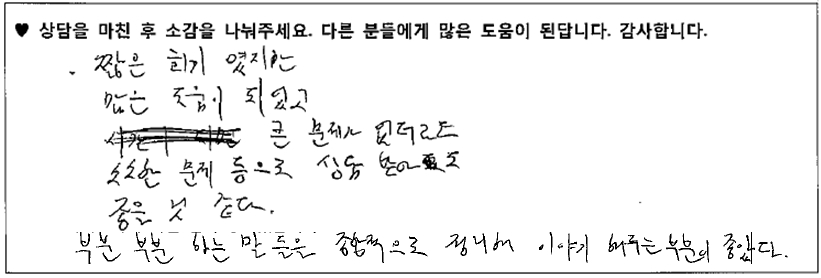 ♥ 상담을 마친 후 소감을 나눠주세요. 다른 분들에게 많은 도움이 된답니다. 감사합니다.
. 짧은 회기 였지만
많은 도움이 되었고
큰 문제가 없더라도
소소한 문제 등으로 상담 받아도
좋을 것 같다.
부분 부분 하는 말들을 종합적으로 정리해 이야기 해주는 부분이 좋았다.